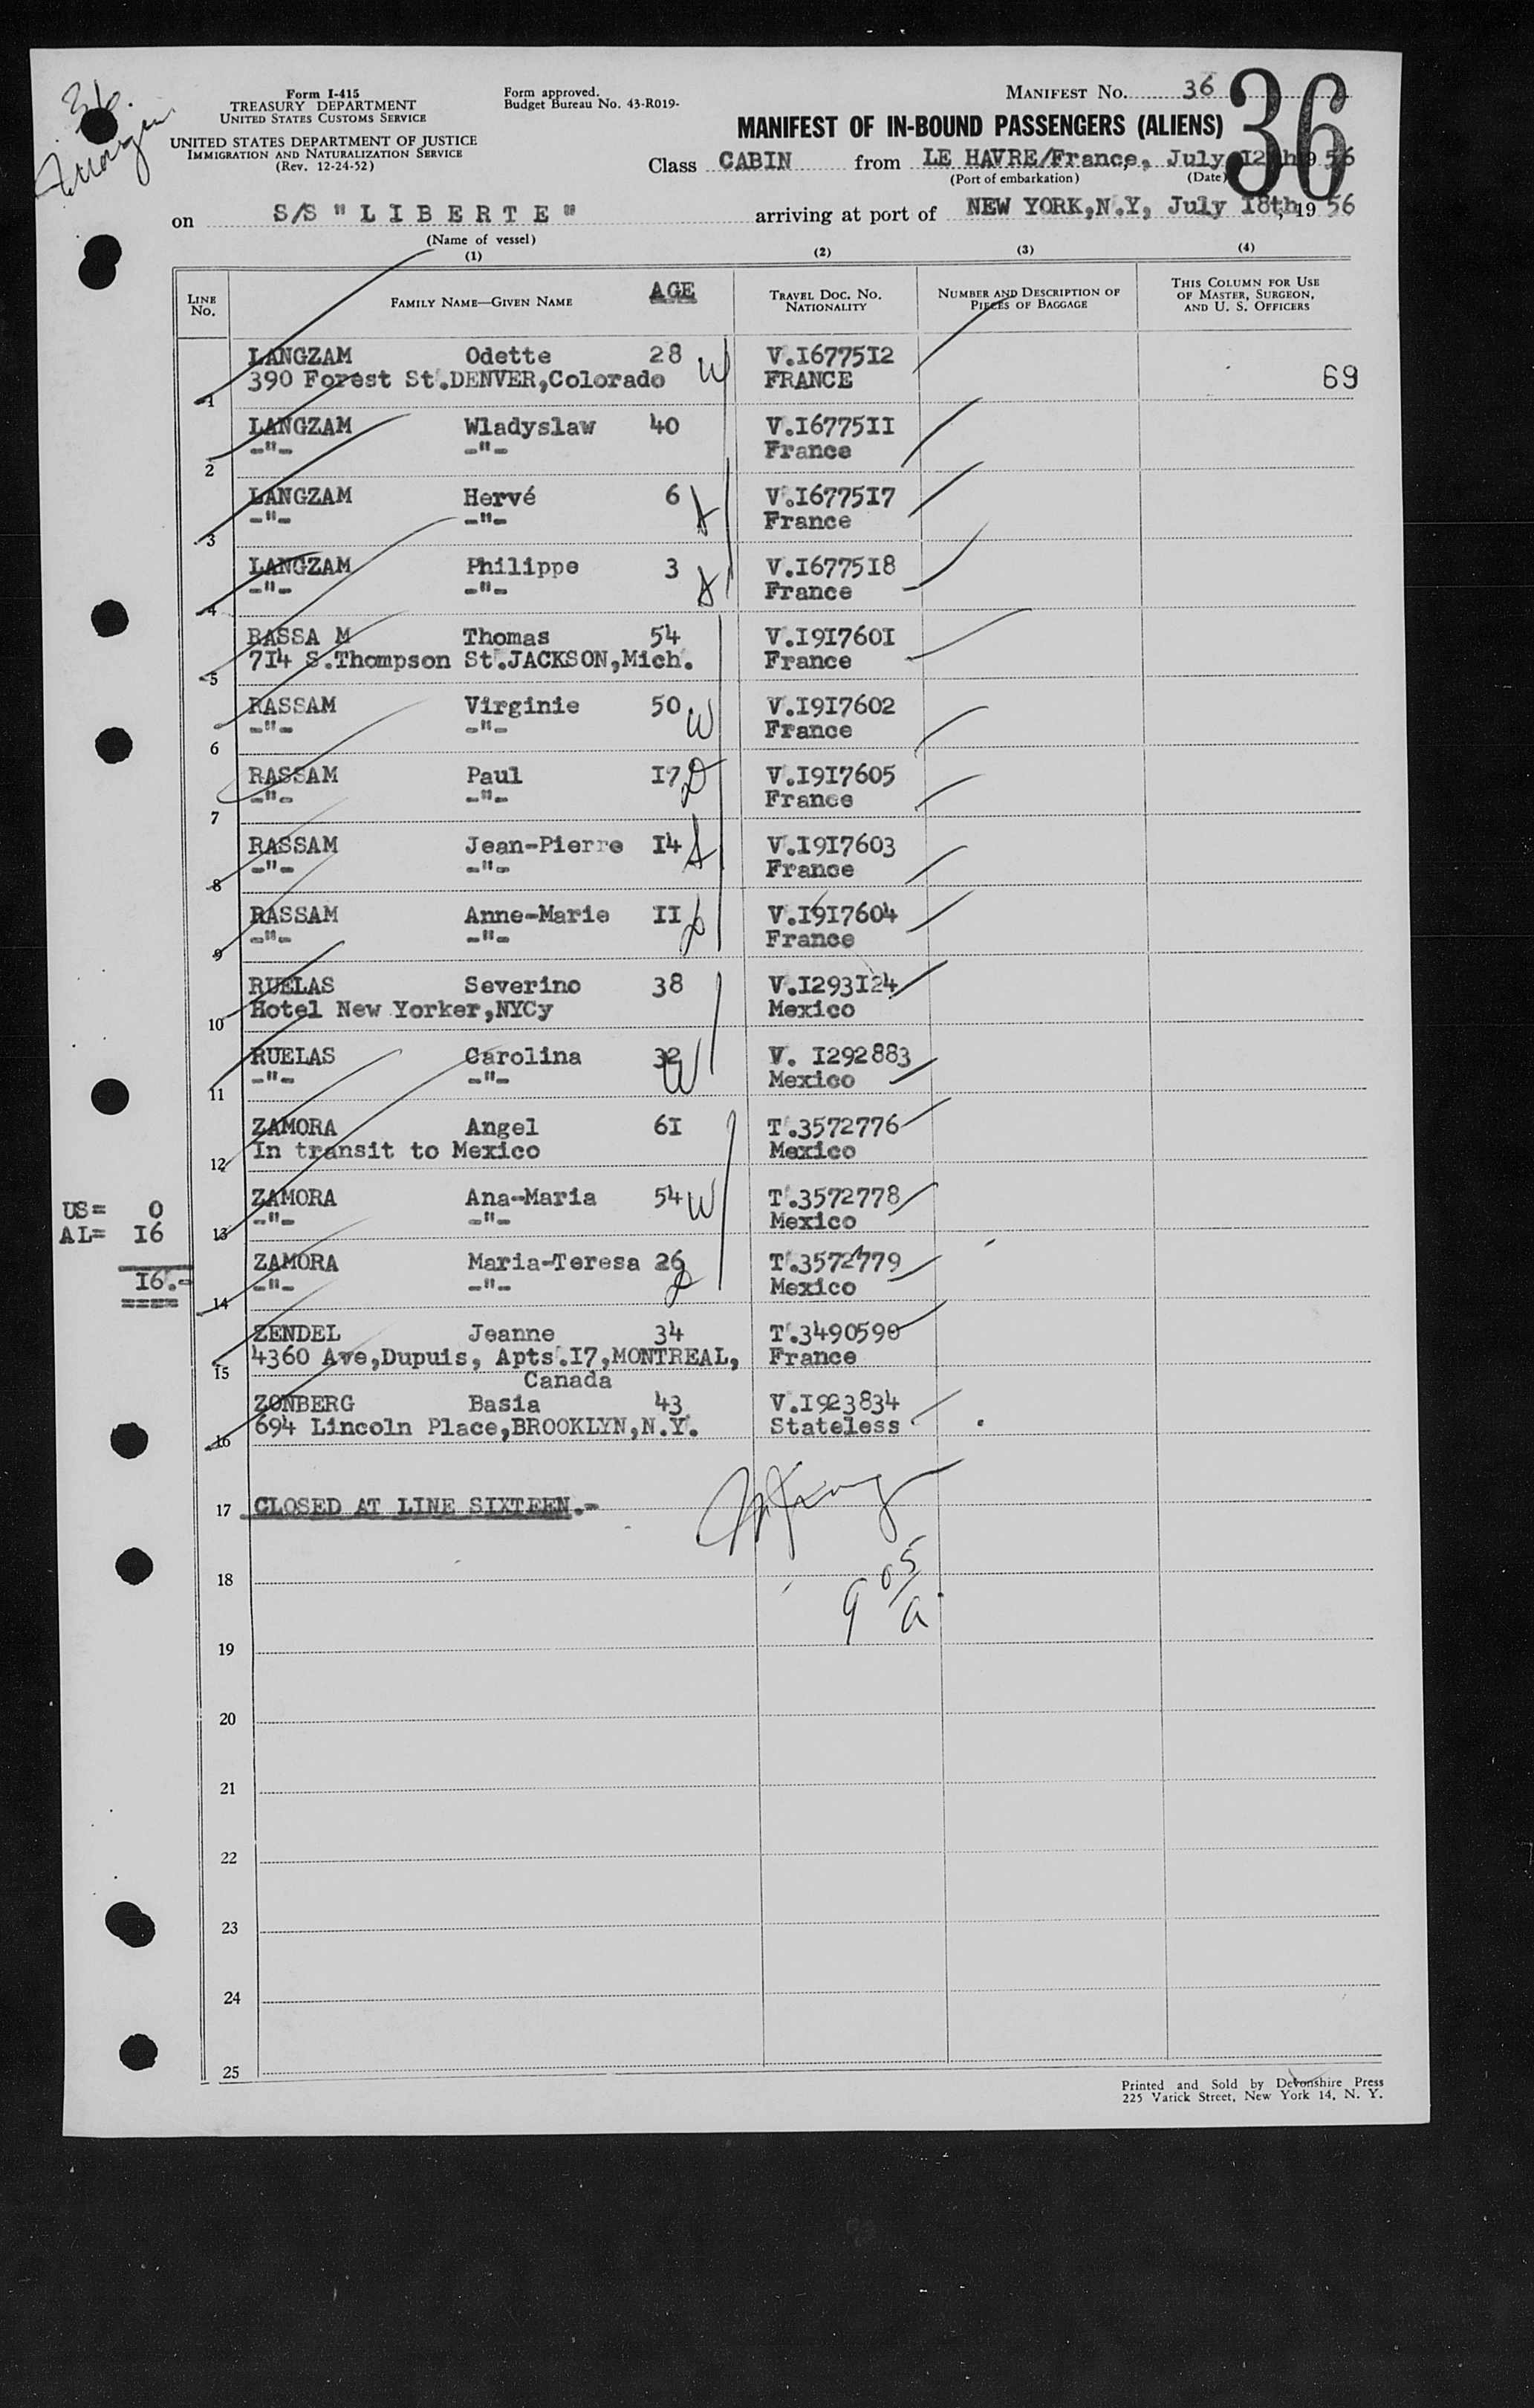 36.
Form I-415
TREASURY DEPARTMENT
UNITED STATES CUSTOMS SERVICE
UNITED STATES DEPARTMENT OF JUSTICE
IMMIGRATION AND NATURALIZATION SERVICE
(Rev. 12-24-52)
Form approved.
Budget Bureau No. 43-R019-
MANIFEST No. 36
36
MANIFEST OF IN-BOUND PASSENGERS (ALIENS)
Class CABIN from LE HAVRE/France, July 12th 1956
(Port of embarkation) (Date)
on S/S "LIBERTE" arriving at port of NEW YORK,N.Y, July 18th, 19 56
(Name of vessel)
(1) (2) (3) (4)
LINE No. FAMILY NAME—GIVEN NAME AGE TRAVEL DOC. NO. NATIONALITY NUMBER AND DESCRIPTION OF PIECES OF BAGGAGE THIS COLUMN FOR USE OF MASTER, SURGEON, AND U. S. OFFICERS
LANGZAM Odette 28 W V.I677512
1 390 Forest St.DENVER,Colorado FRANCE 69
LANGZAM Wladyslaw 40 V.I6775II
2 -"- -"- France
LANGZAM Hervé 6 V.I677517
3 -"- -"- France
LANGZAM Philippe 3 V.I677518
4 -"- -"- France
RASSA M Thomas 54 V.I9I760I
5 714 S.Thompson St.JACKSON,Mich. France
RASSAM Virginie 50 W V.I9I7602
6 -"- -"- France
RASSAM Paul I7 V.I9I7605
7 -"- -"- France
RASSAM Jean-Pierre I4 V.I9I7603
8 -"- -"- France
RASSAM Anne-Marie II V.I9I7604
9 -"- -"- France
RUELAS Severino 38 V.I293I24
10 Hotel New Yorker,NYCy Mexico
RUELAS Carolina 32 W V. I292883
11 -"- -"- Mexico
ZAMORA Angel 6I T.3572776
12 In transit to Mexico Mexico
ZAMORA Ana-Maria 54 W T.3572778
13 -"- -"- Mexico
US= 0
AL= I6
I6.-
====
ZAMORA Maria-Teresa 26 T.3572779
14 -"- -"- Mexico
ZENDEL Jeanne 34 T.3490590
15 4360 Ave,Dupuis, Apts.I7,MONTREAL, France
Canada
ZONBERG Basia 43 V.I923834
16 694 Lincoln Place,BROOKLYN,N.Y. Stateless
17 CLOSED AT LINE SIXTEEN.-
18
9 05/a
19
20
21
22
23
24
25
Printed and Sold by Devonshire Press
225 Varick Street, New York 14, N. Y.